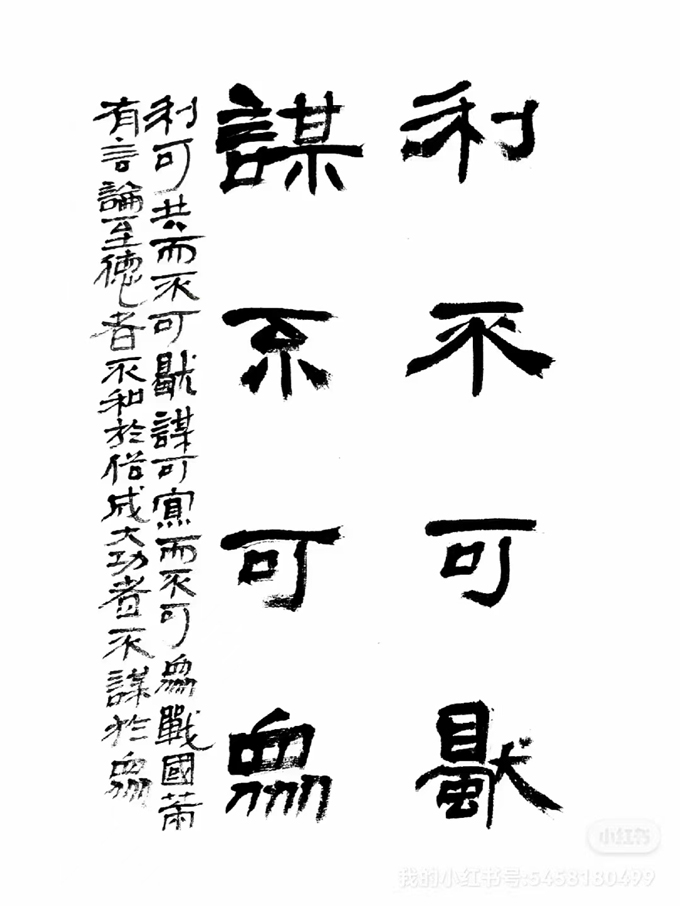 利不可獨
謀不可眾
利可共而不可獨謀可寡而不可眾戰國策
有言論至德者不和於俗成大功者不謀於眾
小红书
我的小红书号:5458180499